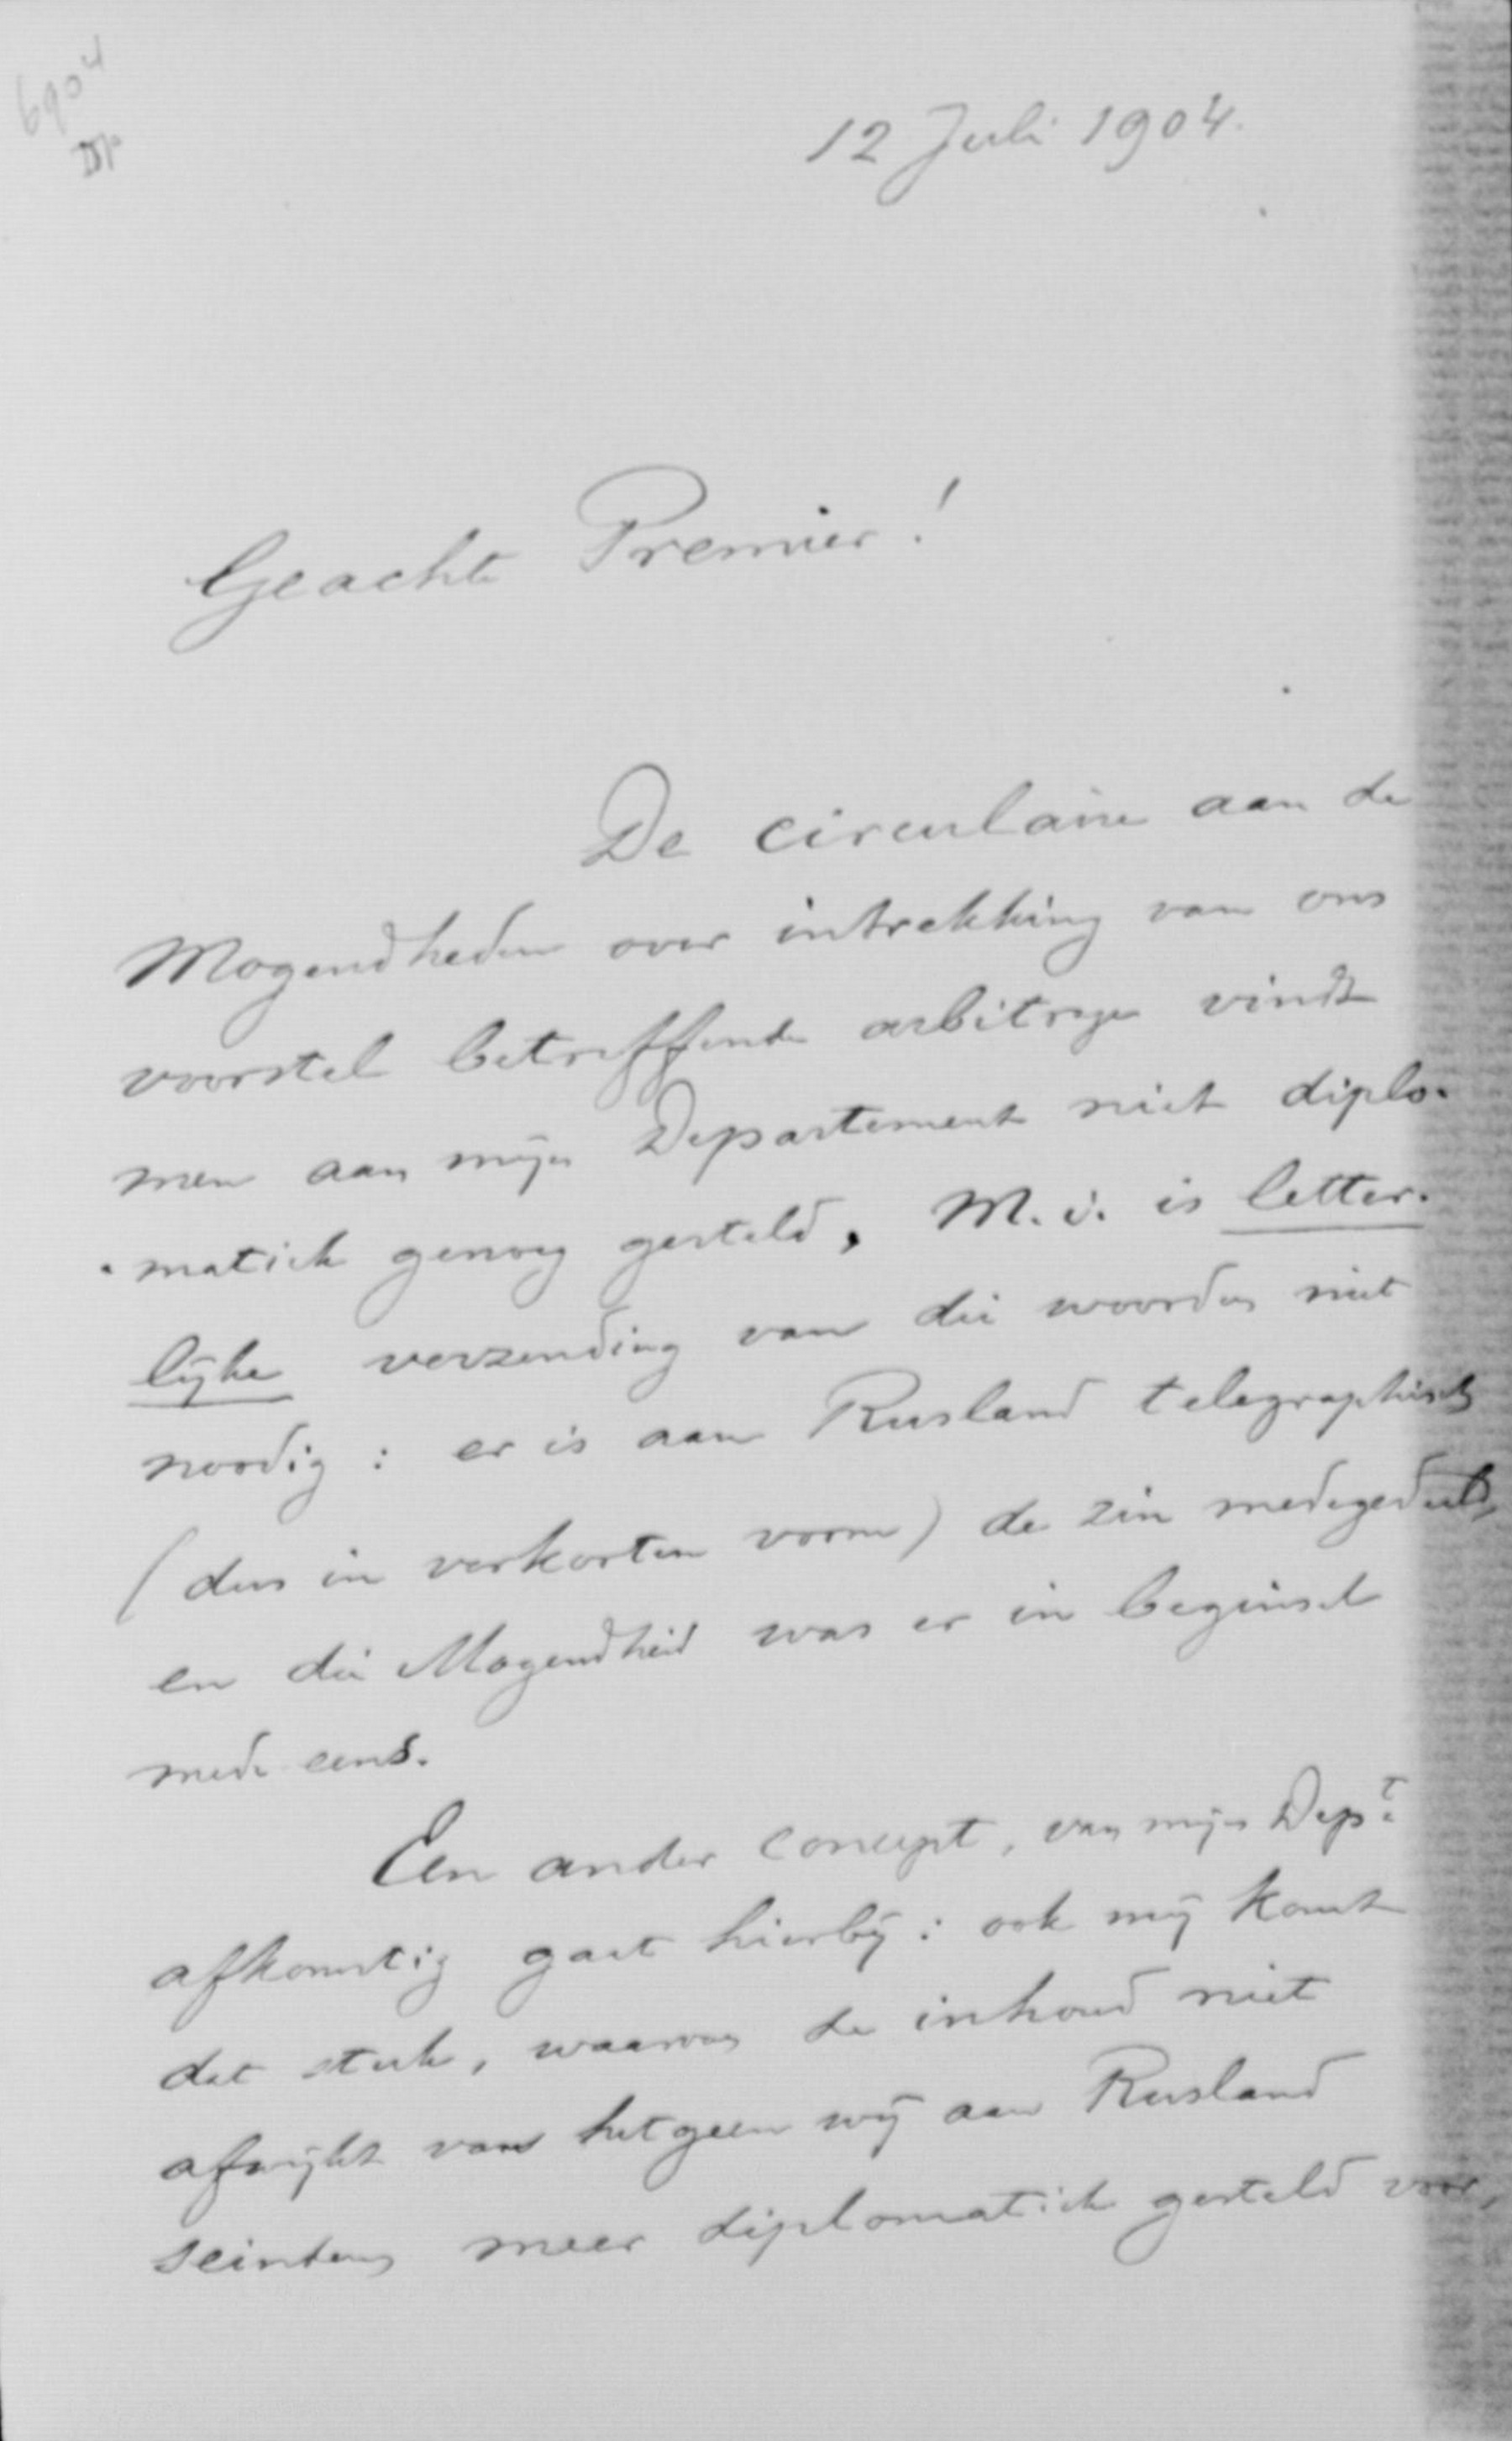 6904
12 Juli 1904.
Geachte Premier!
De circulaire aan de
Mogendheden over intrekking van ons
voorstel betreffende arbitrage vindt
men aan mijn Departement niet diplo-
-matiek genoeg gesteld, M.i. is letter-
lijke verzending van die woorden niet
noodig: er is aan Rusland telegraphisch
(dus in verkorten vorm) de zin medegedeeld,
en die Mogendheid was er in beginsel
mede eens.
Een ander concept, van mijn Dept.
afkomstig gaat hierbij: ook mij komt
dat stuk, waarvan de inhoud niet
afwijkt van hetgeen wij aan Rusland
seinden meer diplomatiek gesteld voor,